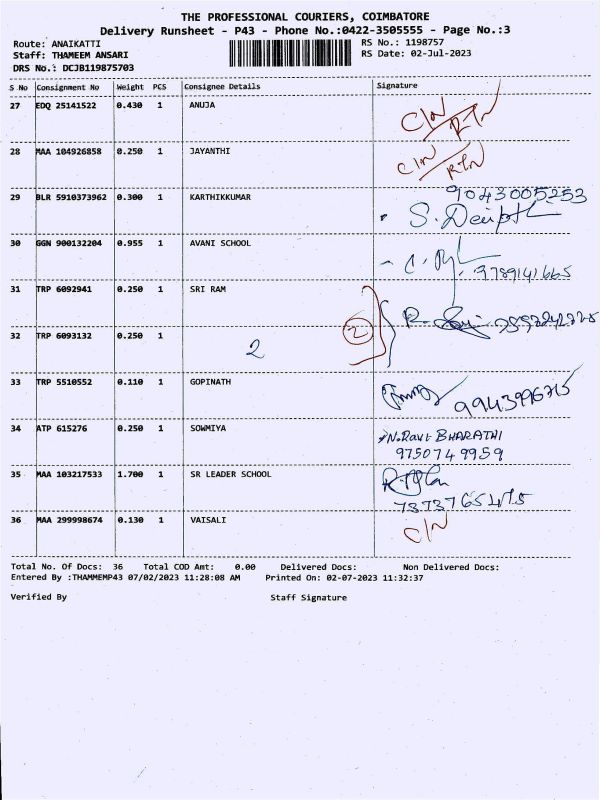 THE PROFESSIONAL COURIERS, COIMBATORE
Delivery Runsheet - P43 - Phone No.:0422-3505555 - Page No.:3
Route: ANAIKATTI
RS No.: 1198757
Staff: THAMEEM ANSARI
RS Date: 02-Jul-2023
DRS No.: DCJB119875703
S No Consignment No Weight PCS Consignee Details Signature
27 EDQ 25141522 0.430 1 ANUJA C/N RTN
28 MAA 104926858 0.250 1 JAYANTHI C/N RTN
29 BLR 5910373962 0.300 1 KARTHIKKUMAR 9043005253
30 GGN 900132204 0.955 1 AVANI SCHOOL 9789141665
31 TRP 6092941 0.250 1 SRI RAM
32 TRP 6093132 0.250 1 2 2
33 TRP 5510552 0.110 1 GOPINATH
34 ATP 615276 0.250 1 SOWMIYA N.Ravi BHARATHI
9750749959
35 MAA 103217533 1.700 1 SR LEADER SCHOOL
36 MAA 299998674 0.130 1 VAISALI C/N
Total No. Of Docs: 36 Total COD Amt: 0.00 Delivered Docs: Non Delivered Docs:
Entered By :THAMMEMP43 07/02/2023 11:28:08 AM Printed On: 02-07-2023 11:32:37
Verified By Staff Signature